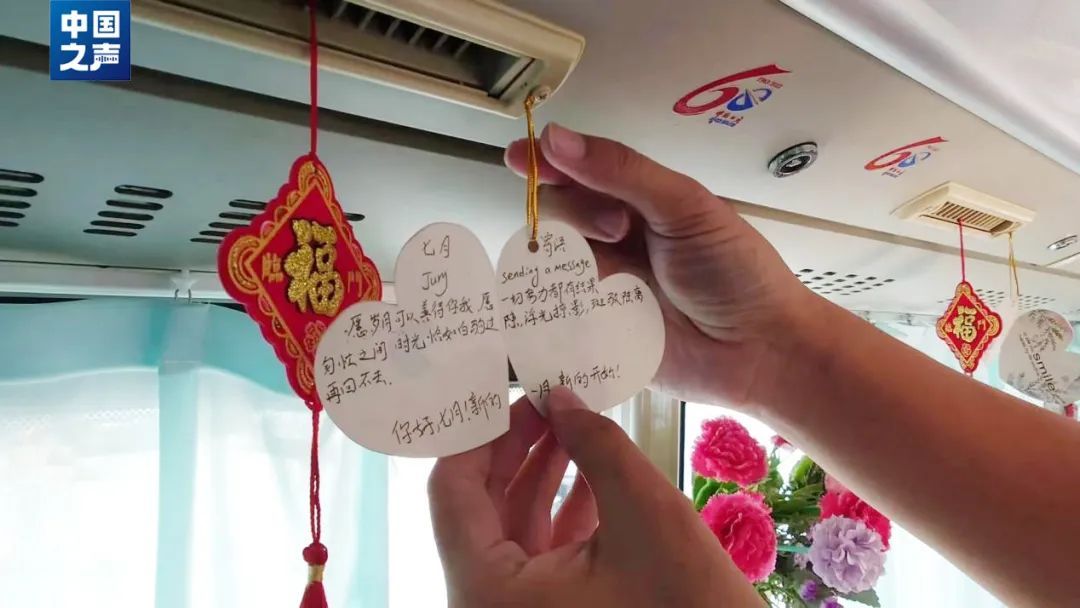 中国
之声
福
七月
July
愿岁月可以善待你我,愿
匆忙之间,时光恰如白驹过
再回不去.
你好,七月!新的
寄语
sending a message
一切努力都有结果
隙,浮光掠影,斑驳陆离
一月,新的开始!
福
smile